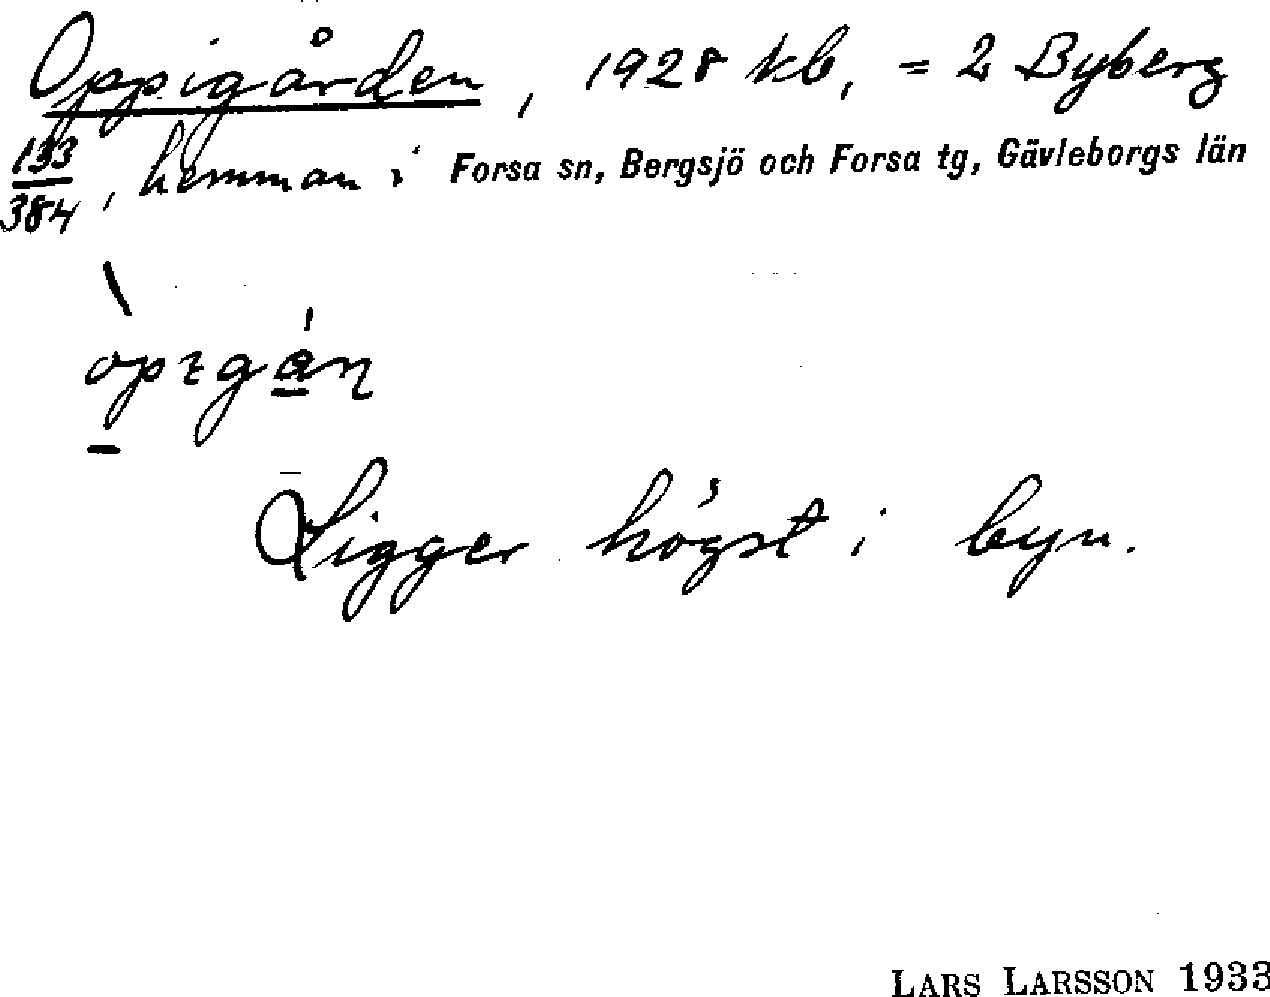 Oppigården, 1928 kb, = 2 Byberg
133/384, hemman i Forsa sn, Bergsjö och Forsa tg, Gävleborgs län
Ligger högst i byn.
LARS LARSSON 1933